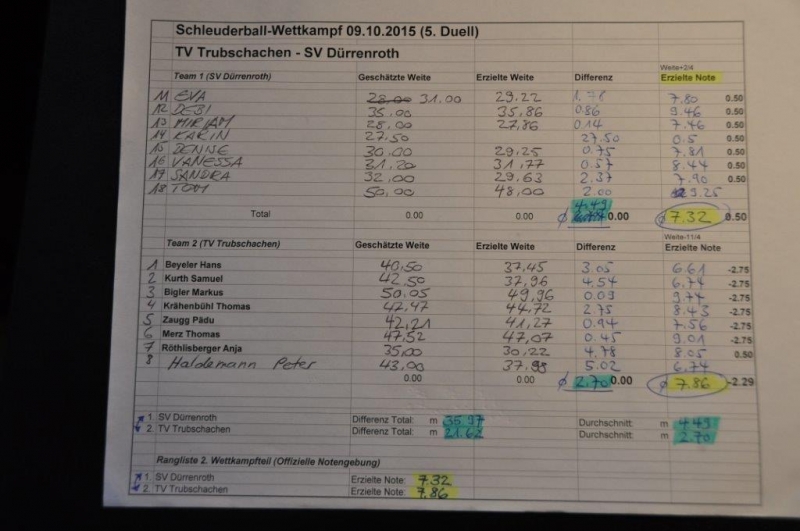 Schleuderball-Wettkampf 09.10.2015 (5. Duell)
TV Trubschachen - SV Dürrenroth
Weite+2/4
Team 1 (SV Dürrenroth) Geschätzte Weite Erzielte Weite Differenz Erzielte Note
11 EVA 28.00 31.00 29,22 1.78 7.80 0.50
12 DEBI 35,00 35,86 0.86 9.46
13 MIRIAM 28,00 27,86 0.14 7.46 0.50
14 KARIN 27.50 27.50 0.5 0.50
15 DENISE 30,00 29,25 0.75 7.81 0.50
16 VANESSA 31,20 31,77 0.57 8.44 0.50
17 SANDRA 32,00 29,63 2.37 7.90 0.50
18 TOM 50,00 48,00 2.00 9.25
4.49
Total 0.00 0.00 Ø 0.00 Ø 7.32 0.50
Weite-11/4
Team 2 (TV Trubschachen) Geschätzte Weite Erzielte Weite Differenz Erzielte Note
1 Beyeler Hans 40,50 37,45 3.05 6.61 -2.75
2 Kurth Samuel 42,50 37,96 4.54 6.74 -2.75
3 Bigler Markus 50,05 49,96 0.09 9.74 -2.75
4 Krähenbühl Thomas 47,47 44,72 2.75 8.43 -2.75
5 Zaugg Pädu 42,21 41,27 0.94 7.56 -2.75
6 Merz Thomas 47,52 47,07 0.45 9.01 -2.75
7 Röthlisberger Anja 35,00 30,22 4.78 8.05 0.50
8 Haldemann Peter 43,00 37,98 5.02 6.74
0.00 0.00 Ø 2.70 0.00 Ø 7.86 -2.29
1. SV Dürrenroth Differenz Total: m 35.97 Durchschnitt: m 4.49
2. TV Trubschachen Differenz Total: m 21.62 Durchschnitt: m 2.70
Rangliste 2. Wettkampfteil (Offizielle Notengebung)
1. SV Dürrenroth Erzielte Note: 7.32
2. TV Trubschachen Erzielte Note: 7.86